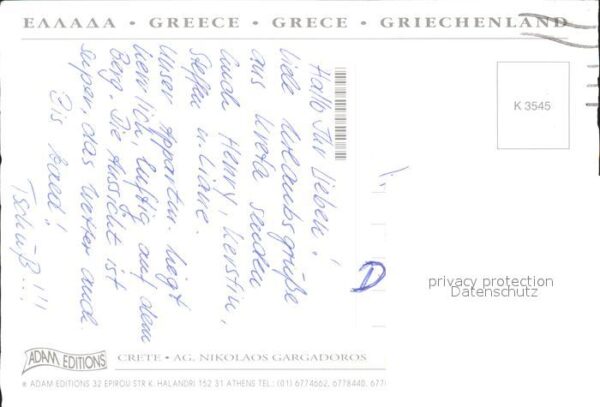 ΕΛΛΑΔΑ • GREECE • GRECE • GRIECHENLAND
Hallo Ihr Lieben!
Viele Urlaubsgrüße
aus Kreta senden
Euch Henry, Kerstin,
Steffen u. Liane.
Unser Appartm. liegt
herrlich, luftig auf dem
Berg. Die Aussicht ist
super, das Wetter auch.
Bis bald!
Tschüß!!!
K 3545
D
privacy protection
Datenschutz
ADAM EDITIONS
CRETE • AG. NIKOLAOS GARGADOROS
® ADAM EDITIONS 32 EPIROU STR K. HALANDRI 152 31 ATHENS TEL.: (01) 6774662, 6778440, 677